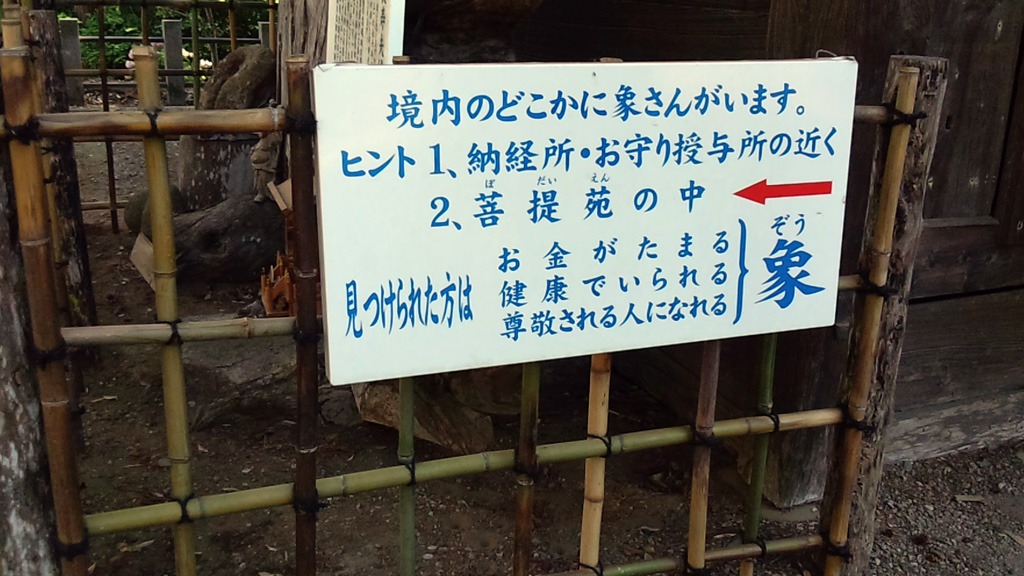 境内のどこかに象さんがいます。
ヒント1、納経所・お守り授与所の近く
ぼだいえん
2、菩提苑の中
見つけられた方は
お金がたまる
健康でいられる
尊敬される人になれる
ぞう
象